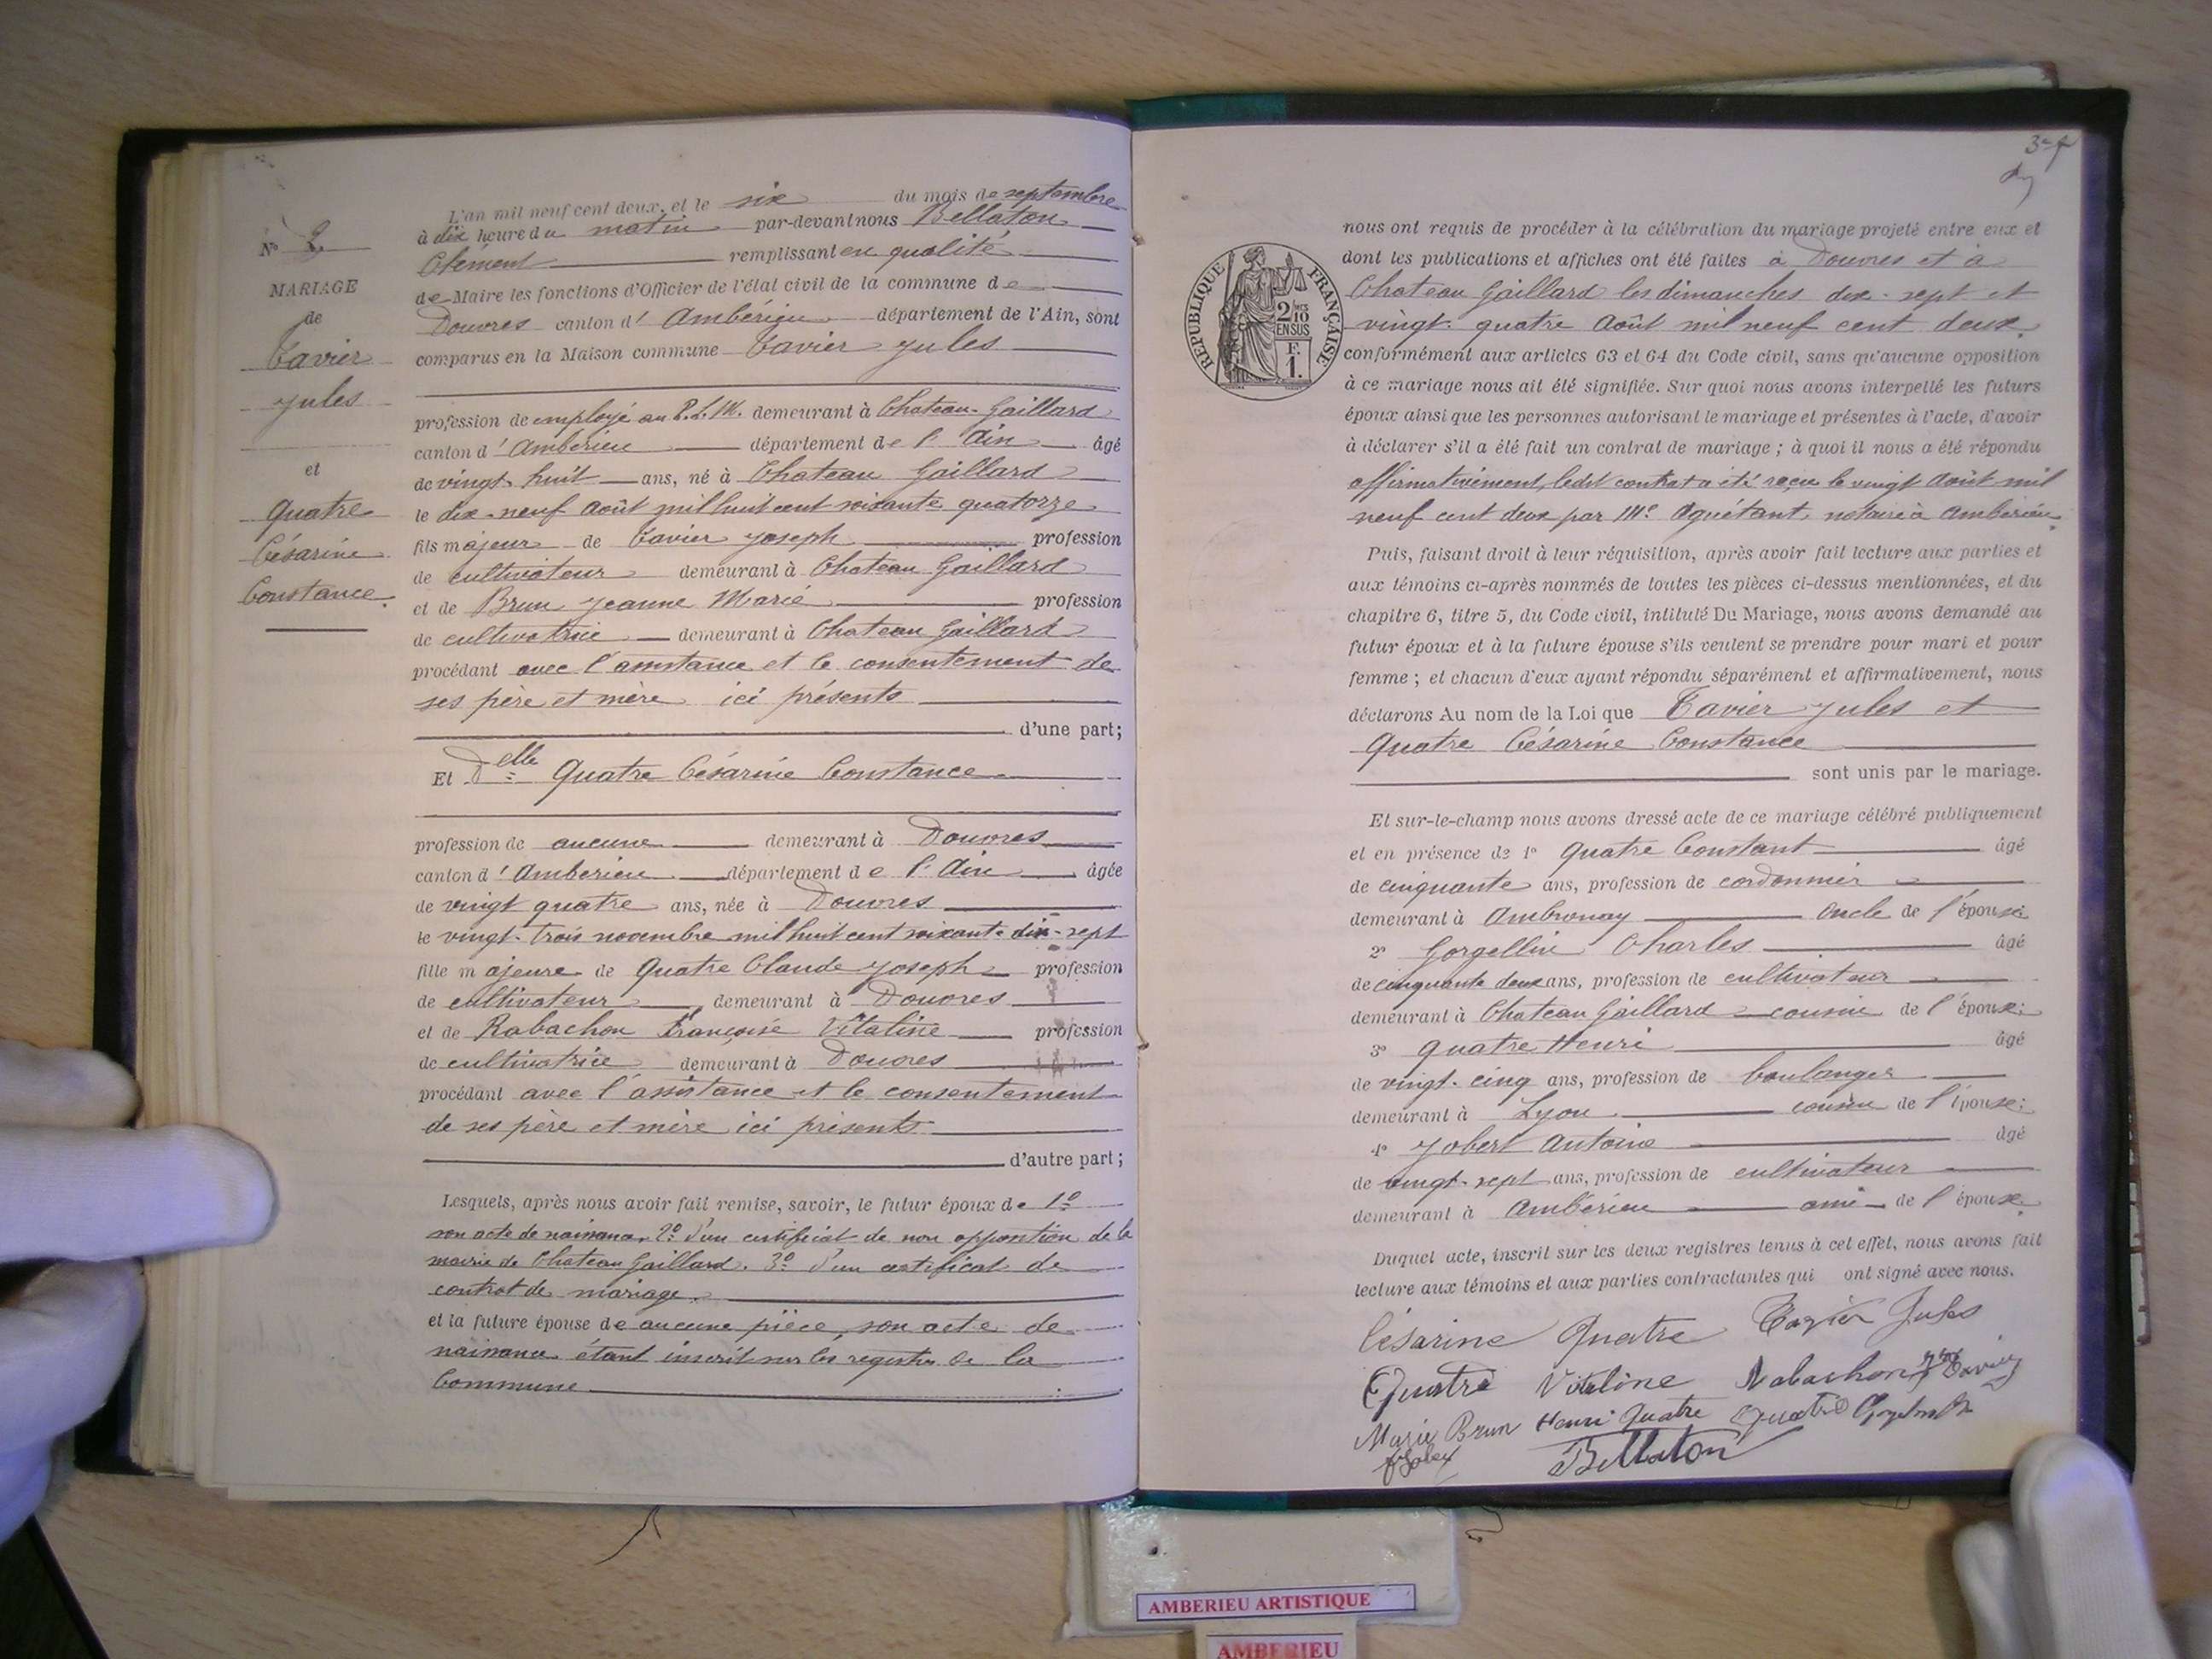 L'an mil neuf cent deux, et le six du mois de septembre
à dix heure du matin par-devant nous Bellaton
Clément remplissant en qualité
de Maire les fonctions d'Officier de l'état civil de la commune de
Douvres canton d'Ambérieu département de l'Ain, sont
comparus en la Maison commune Tavier Jules
profession de employé au P.L.M. demeurant à Chateau-Gaillard
canton d'Ambérieu département de l'Ain âgé
de vingt-huit ans, né à Chateau Gaillard
le dix-neuf Août mil huit cent soixante quatorze
fils majeur de Tavier Joseph profession
de cultivateur demeurant à Chateau Gaillard
et de Brun Jeanne Marie profession
de cultivatrice demeurant à Chateau Gaillard
procédant avec l'assistance et le consentement de
ses père et mère ici présents
d'une part;
Et Delle Quatre Césarine Constance
profession de aucune demeurant à Douvres
canton d'Ambérieu département de l'Ain âgée
de vingt quatre ans, née à Douvres
le vingt-trois novembre mil huit cent soixante-dix-sept
fille majeure de Quatre Claude Joseph profession
de cultivateur demeurant à Douvres
et de Rabachon Françoise Vitaline profession
de cultivatrice demeurant à Douvres
procédant avec l'assistance et le consentement
de ses père et mère ici présents
d'autre part;
Lesquels, après nous avoir fait remise, savoir, le futur époux de 1º
son acte de naissance. 2º d'un certificat de non opposition de la
mairie de Chateau Gaillard. 3º d'un certificat de
contrat de mariage.
et la future épouse de aucune pièce, son acte de
naissance étant inscrit sur les registres de la
Commune
Nº 2
MARIAGE
de
Tavier
Jules
et
Quatre
Césarine
Constance
nous ont requis de procéder à la célébration du mariage projeté entre eux et
dont les publications et affiches ont été faites à Douvres et à
Chateau Gaillard les dimanches dix-sept et
vingt-quatre Août mil neuf cent deux
conformément aux articles 63 et 64 du Code civil, sans qu'aucune opposition
à ce mariage nous ait été signifiée. Sur quoi nous avons interpellé les futurs
époux ainsi que les personnes autorisant le mariage et présentes à l'acte, d'avoir
à déclarer s'il a été fait un contrat de mariage; à quoi il nous a été répondu
affirmativement, ledit contrat a été reçu le vingt Août mil
neuf cent deux par Me Aguétant, notaire à Ambérieu.
Puis, faisant droit à leur réquisition, après avoir fait lecture aux parties et
aux témoins ci-après nommés de toutes les pièces ci-dessus mentionnées, et du
chapitre 6, titre 5, du Code civil, intitulé Du Mariage, nous avons demandé au
futur époux et à la future épouse s'ils veulent se prendre pour mari et pour
femme; et chacun d'eux ayant répondu séparément et affirmativement, nous
déclarons Au nom de la Loi que Tavier Jules et
Quatre Césarine Constance
sont unis par le mariage.
Et sur-le-champ nous avons dressé acte de ce mariage célébré publiquement
et en présence de 1º Quatre Constant âgé
de cinquante ans, profession de cordonnier
demeurant à Ambronay oncle de l'épouse
2º Gorgellin Charles âgé
de cinquante deux ans, profession de cultivateur
demeurant à Chateau Gaillard cousin de l'épouse;
3º Quatre Henri âgé
de vingt-cinq ans, profession de boulanger
demeurant à Lyon cousin de l'épouse;
4º Jobert Antoine âgé
de vingt-sept ans, profession de cultivateur
demeurant à Ambérieu ami de l'épouse
Duquel acte, inscrit sur les deux registres tenus à cet effet, nous avons fait
lecture aux témoins et aux parties contractantes qui ont signé avec nous.
Césarine Quatre Tavier Jules
Quatre Vitaline Rabachon
Marie Brun Henri Quatre Quatre
Bellaton
RÉPUBLIQUE FRANÇAISE
2/10 EN SUS
F.
1.
AMBERIEU ARTISTIQUE
AMBERIEU